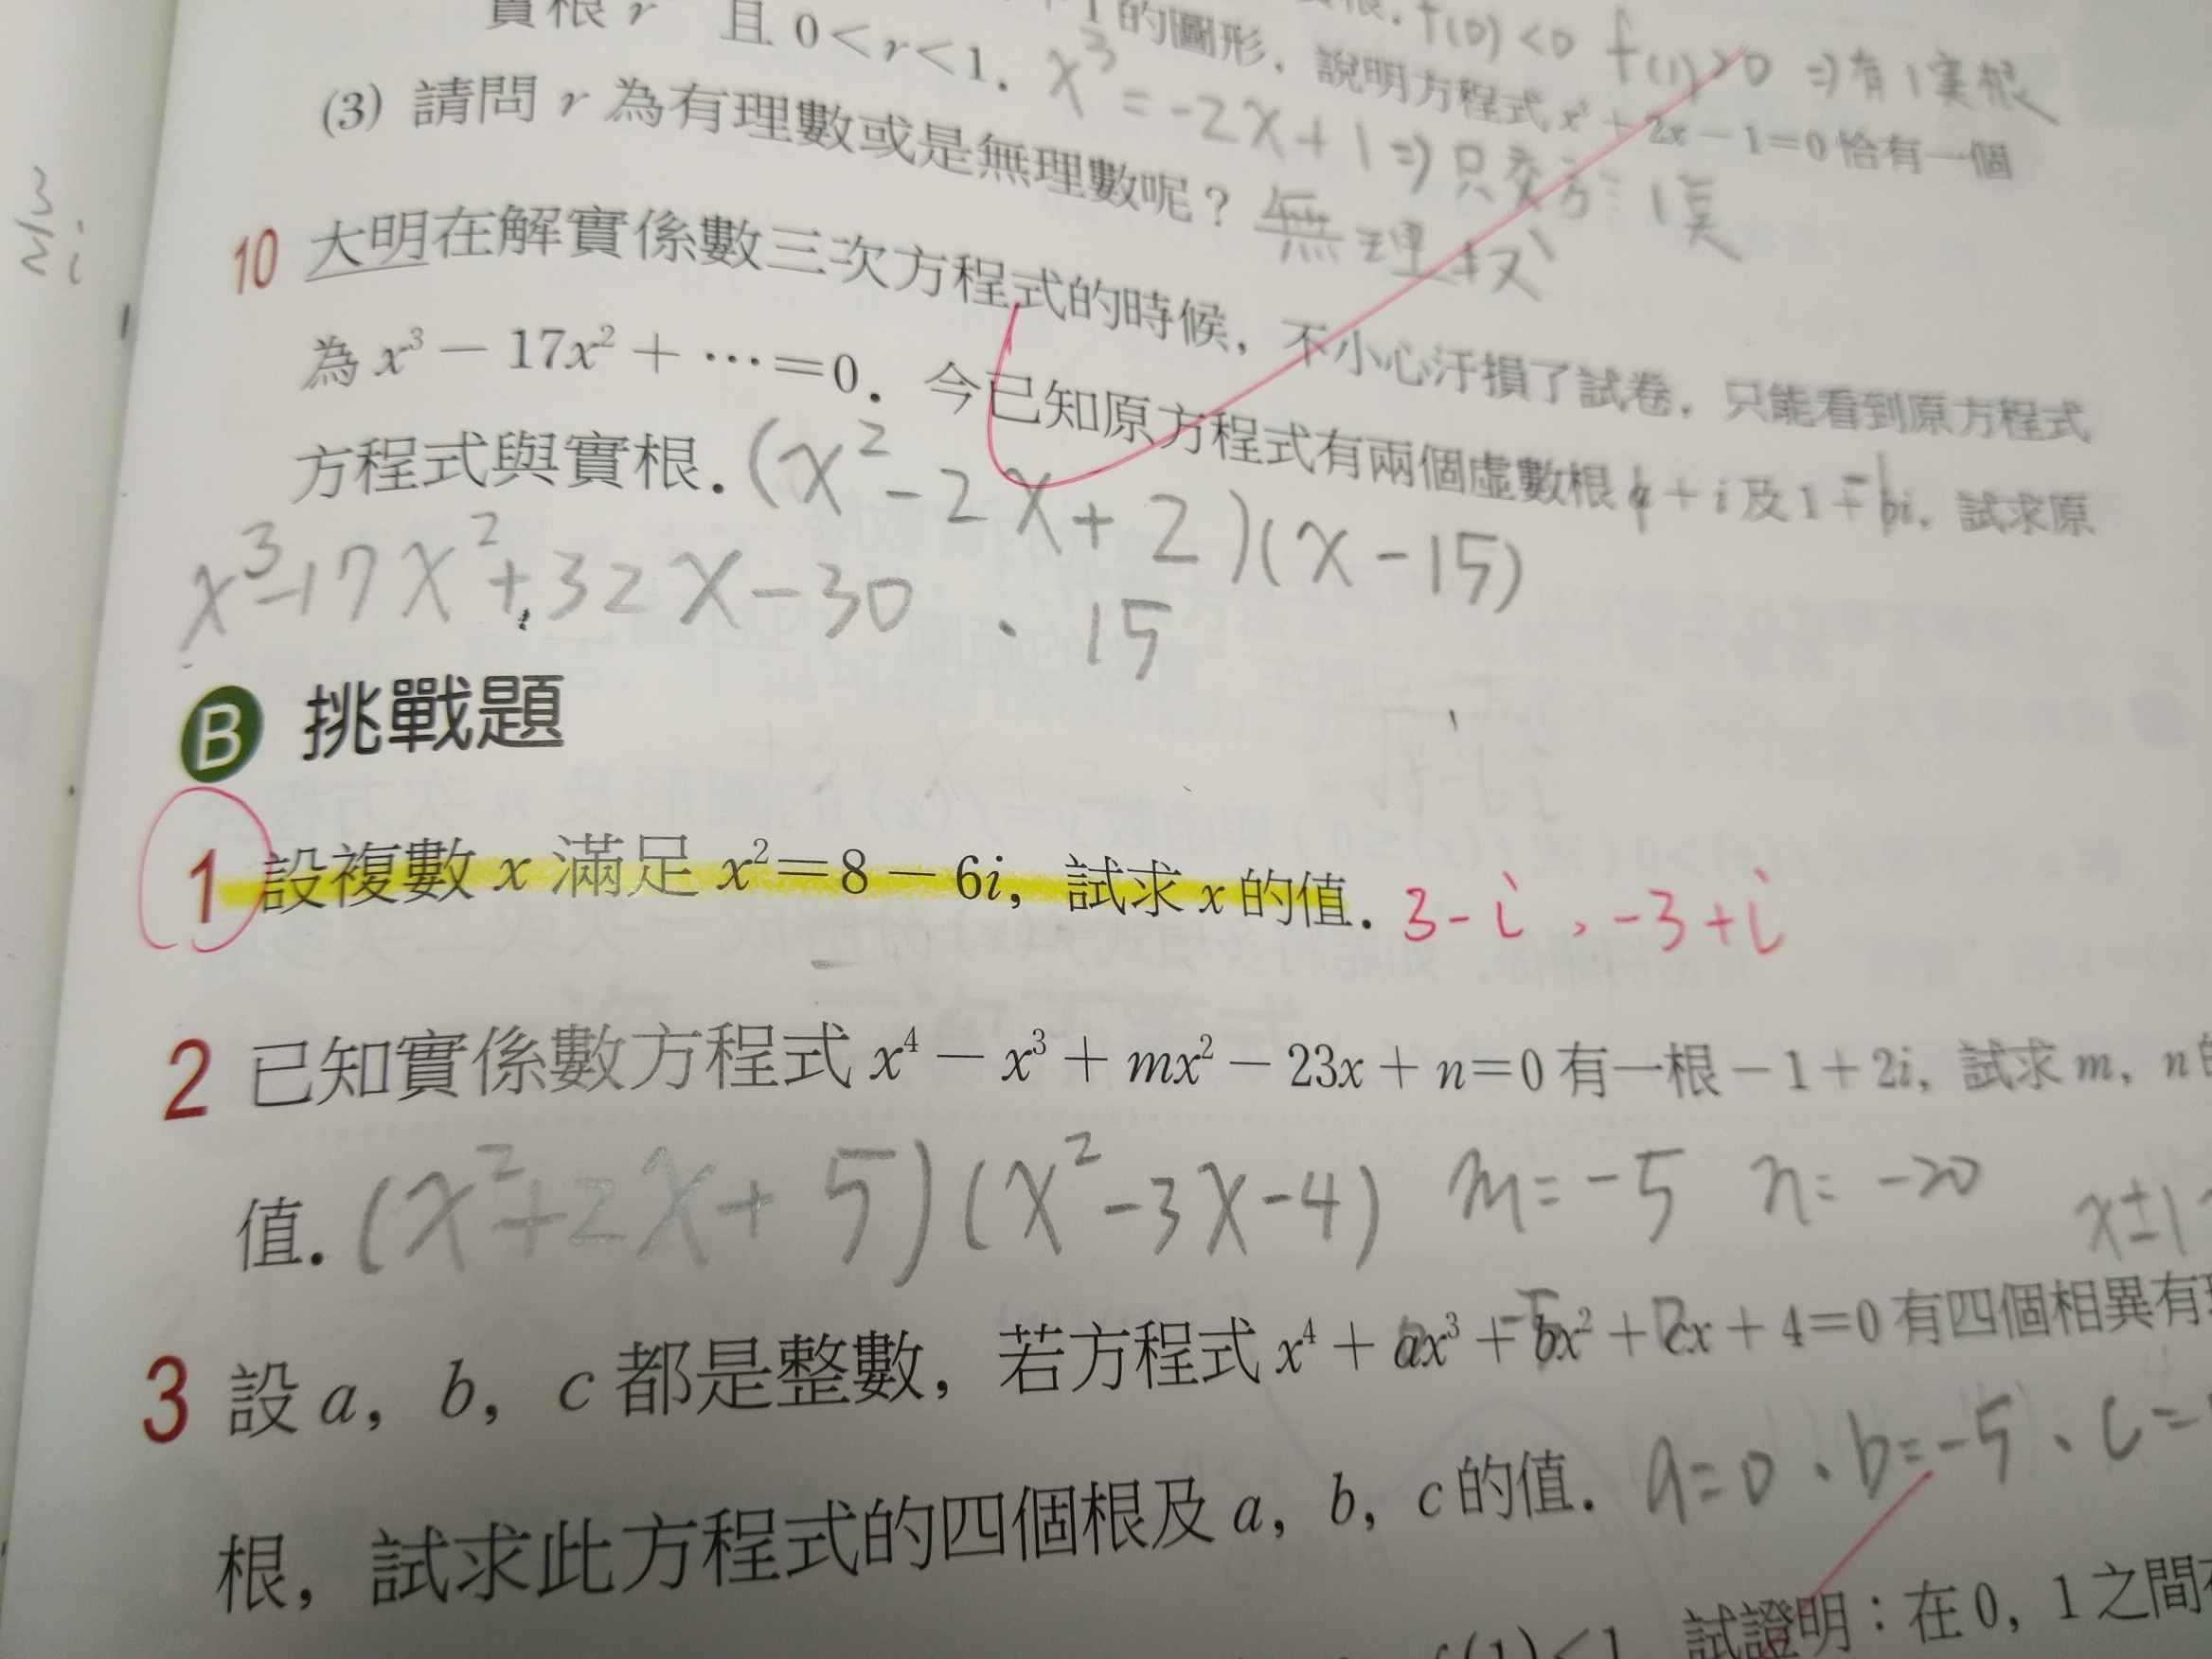 實根 r 且 0<r<1.
的圖形，說明方程式 x³+2x−1=0 恰有一個
f(0)<0 f(1)>0 ⇒有1實根
x³=-2x+1⇒只交於1實
(3) 請問 r 為有理數或是無理數呢？ 無理
3/2 i
10 大明在解實係數三次方程式的時候，不小心汙損了試卷，只能看到原方程式
為 x³−17x²+⋯=0．今已知原方程式有兩個虛數根 a+i 及 1+bi，試求原
方程式與實根．(x²-2x+2)(x-15)
x³-17x²+32x-30 、15
B 挑戰題
1 設複數 x 滿足 x²=8−6i，試求 x 的值．3-i，-3+i
2 已知實係數方程式 x⁴−x³+mx²−23x+n=0 有一根−1+2i，試求 m，n 的
值．(x²+2x+5)(x²-3x-4) m=-5 n=-20
x±1
3 設 a，b，c 都是整數，若方程式 x⁴+ax³+bx²+cx+4=0 有四個相異有理
根，試求此方程式的四個根及 a，b，c 的值．a=0、b=-5、c=
f(1)<1，試證明：在 0，1 之間有